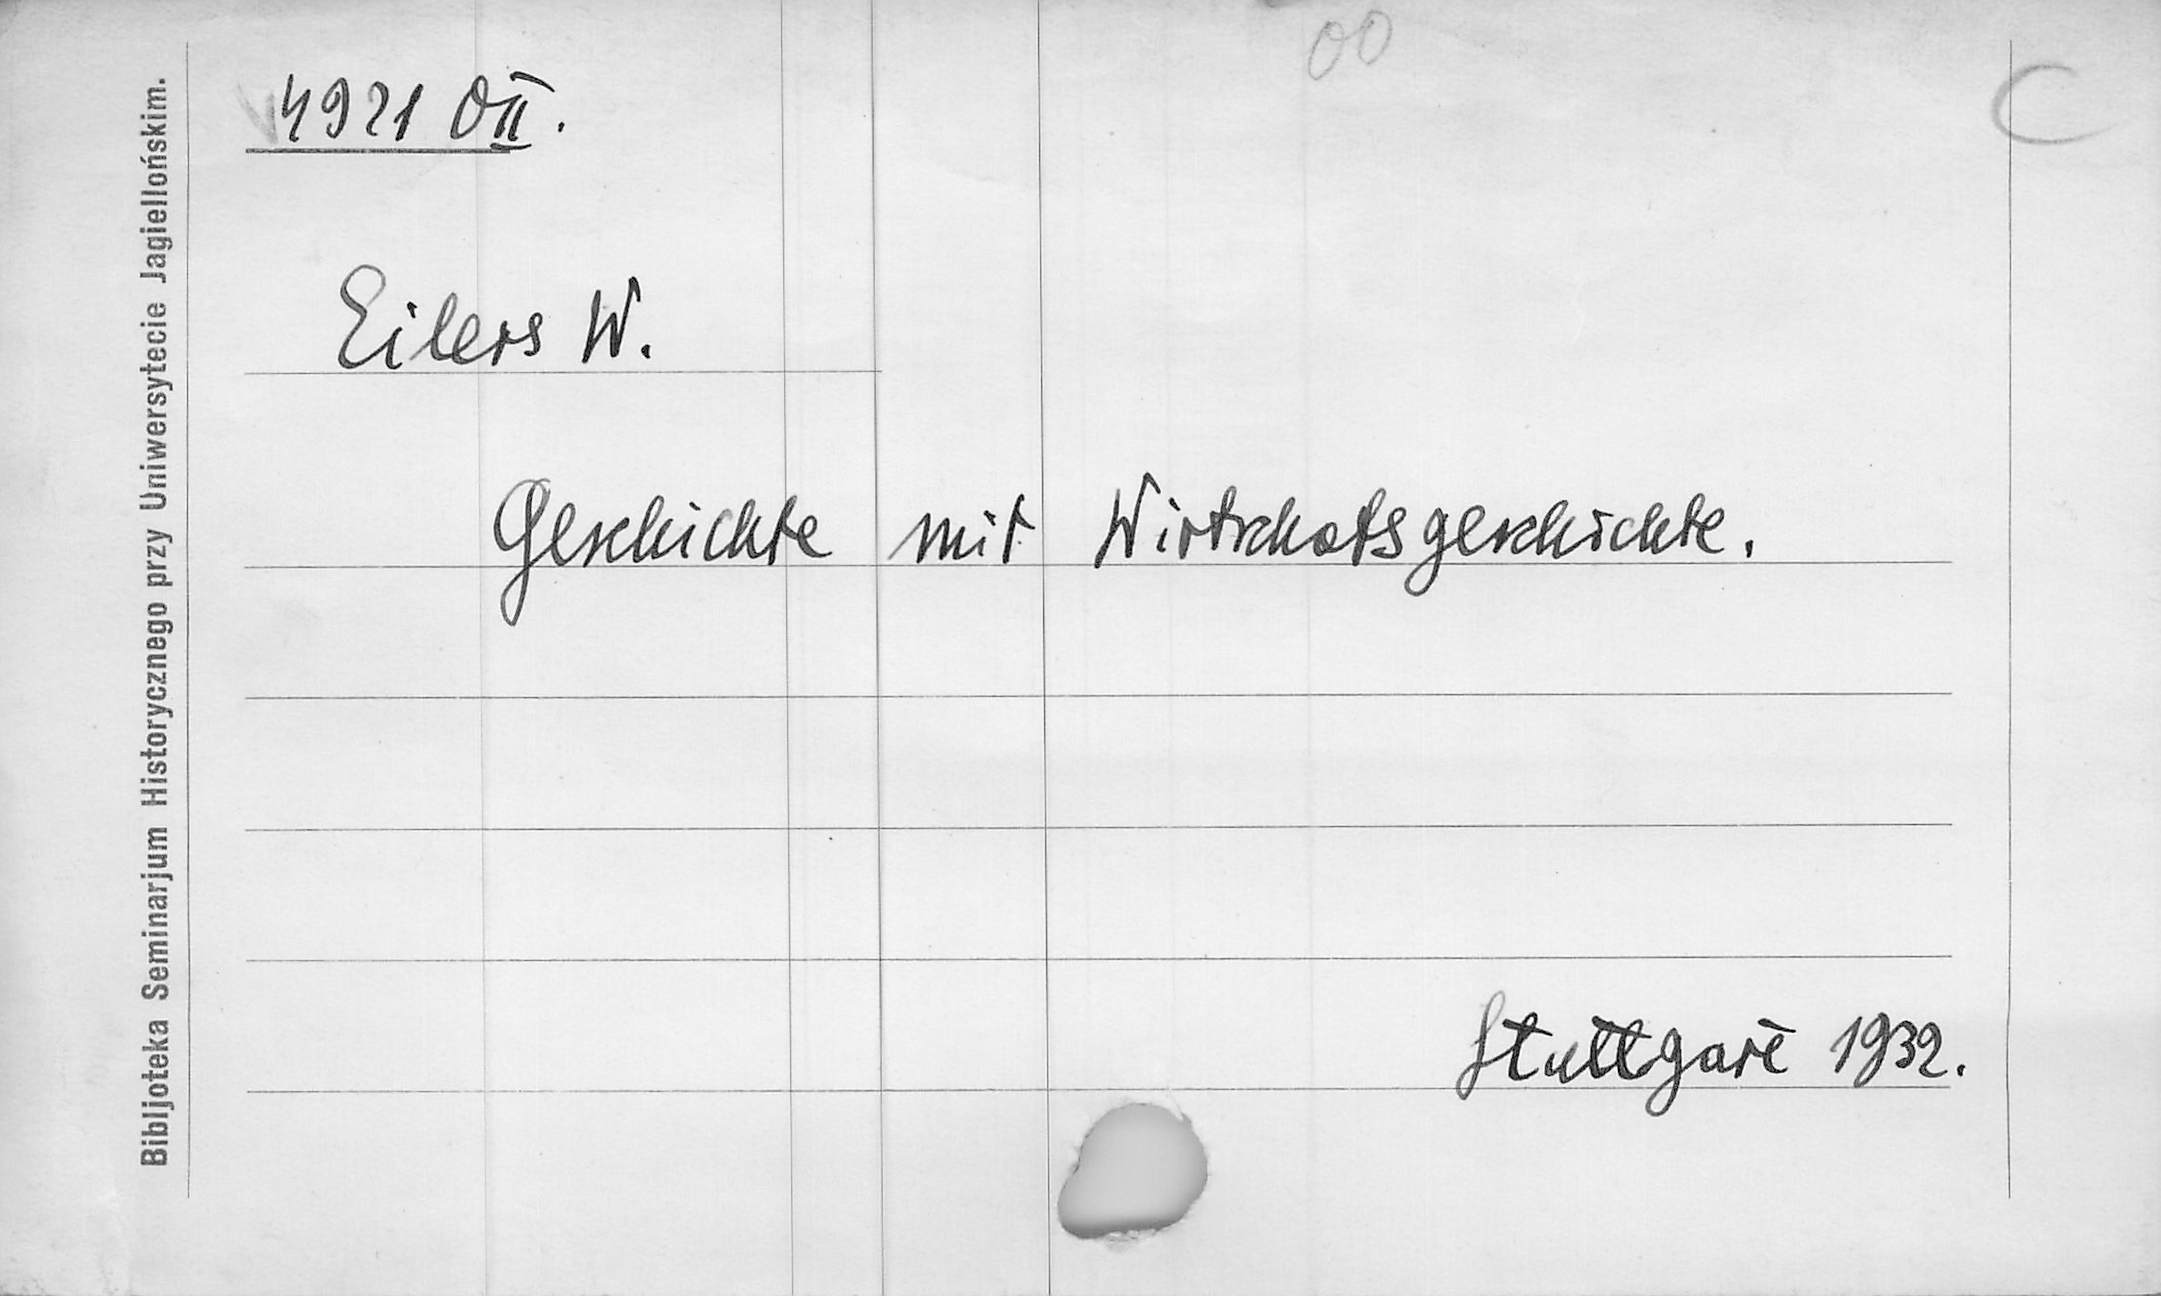 00
C
4921 OII.
Eilers W.
Geschichte mit Wirtschatsgeschichte.
Stuttgart 1932.
Bibljoteka Seminarjum Historycznego przy Uniwersytecie Jagiellońskim.